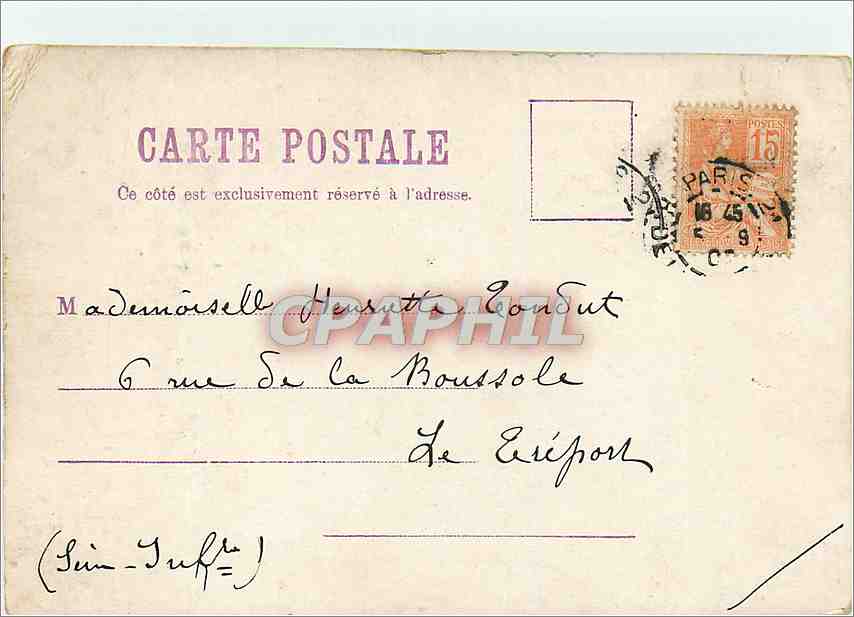 CARTE POSTALE
Ce côté est exclusivement réservé à l'adresse.
POSTES
15
PARIS
16 45
5 9
Mademoiselle Henriette Condut
CPAPHIL
6 rue de la Boussole
Le Tréport
(Sein-Infre)